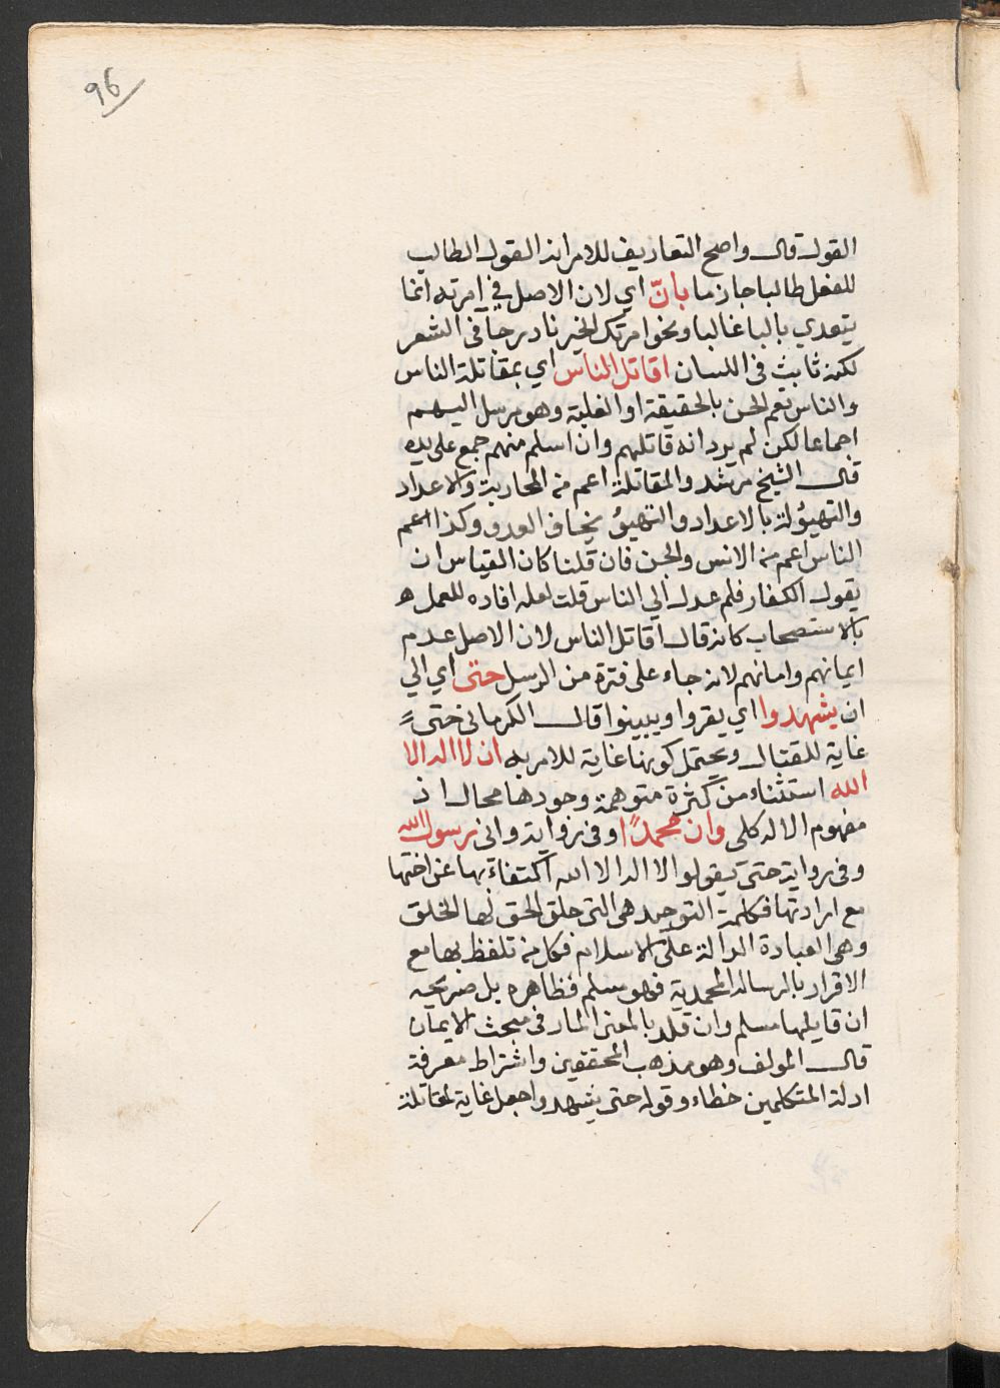 96
القول قال واصح التعاريف للامر انه القول الطالب
للفعل طالبا جازما بانّ اي لان الاصل في امرته انما
يتعدي بالبا غالبا ونحو امرتك الخير نادر جاٰ في الشعر
لكنه ثابث في اللسان اقاتل الناس اي بمقاتلة الناس
والناس تعم الجن بالحقيقة او الغلبة وهو مرسل اليهم
اجماعا لكن لم يرد انه قاتلهم وان اسلم منهم جمع علي يده
قال الشيخ مرشد والمقاتلة اعم من المحاربة والاعداد
والتهيؤ له بالاعداد والتهيؤ يخاف العدو وكذا اعم
الناس اعم من الانس والجن فان قلنا كان القياس ان
يقول الكفار فلم عدل الي الناس قلت لعله افاده للعمل
بالاستصحاب كانه قال اقاتل الناس لان الاصل عدم
ايمانهم وامانهم لانه جاء علي فترة من الرسل حتى اي الي
ان يشهدوا اي يقروا ويبينوا قال الكرماني حتى
غاية للقتال ويحتمل كونها غاية للامر به ان لا اله الا
الله استثناء من كثرة متوهمة وجودها محال اذ
مفهوم الاله كلي وان محمدًا وفي رواية واني رسول الله
وفي رواية حتى يقولوا لا اله الا الله اكتفاء بها عن اختها
مع ارادتها فكلمة التوحيد هي التي خلق الحق لها الخلق
وهي العبادة الدالة على الاسلام فكل من تلفظ بها مع
الاقرار بالرسالة المحمدية فهو مسلم فظاهره بل صريحه
ان قايلها مسلم وان قلد بالمعنى المار في مبحث الايمان
قال المولف وهو مذهب المحققين واشتراط معرفة
ادلة المتكلمين خطاء وقوله حتى يشهدوا جعل غاية لمقاتلة